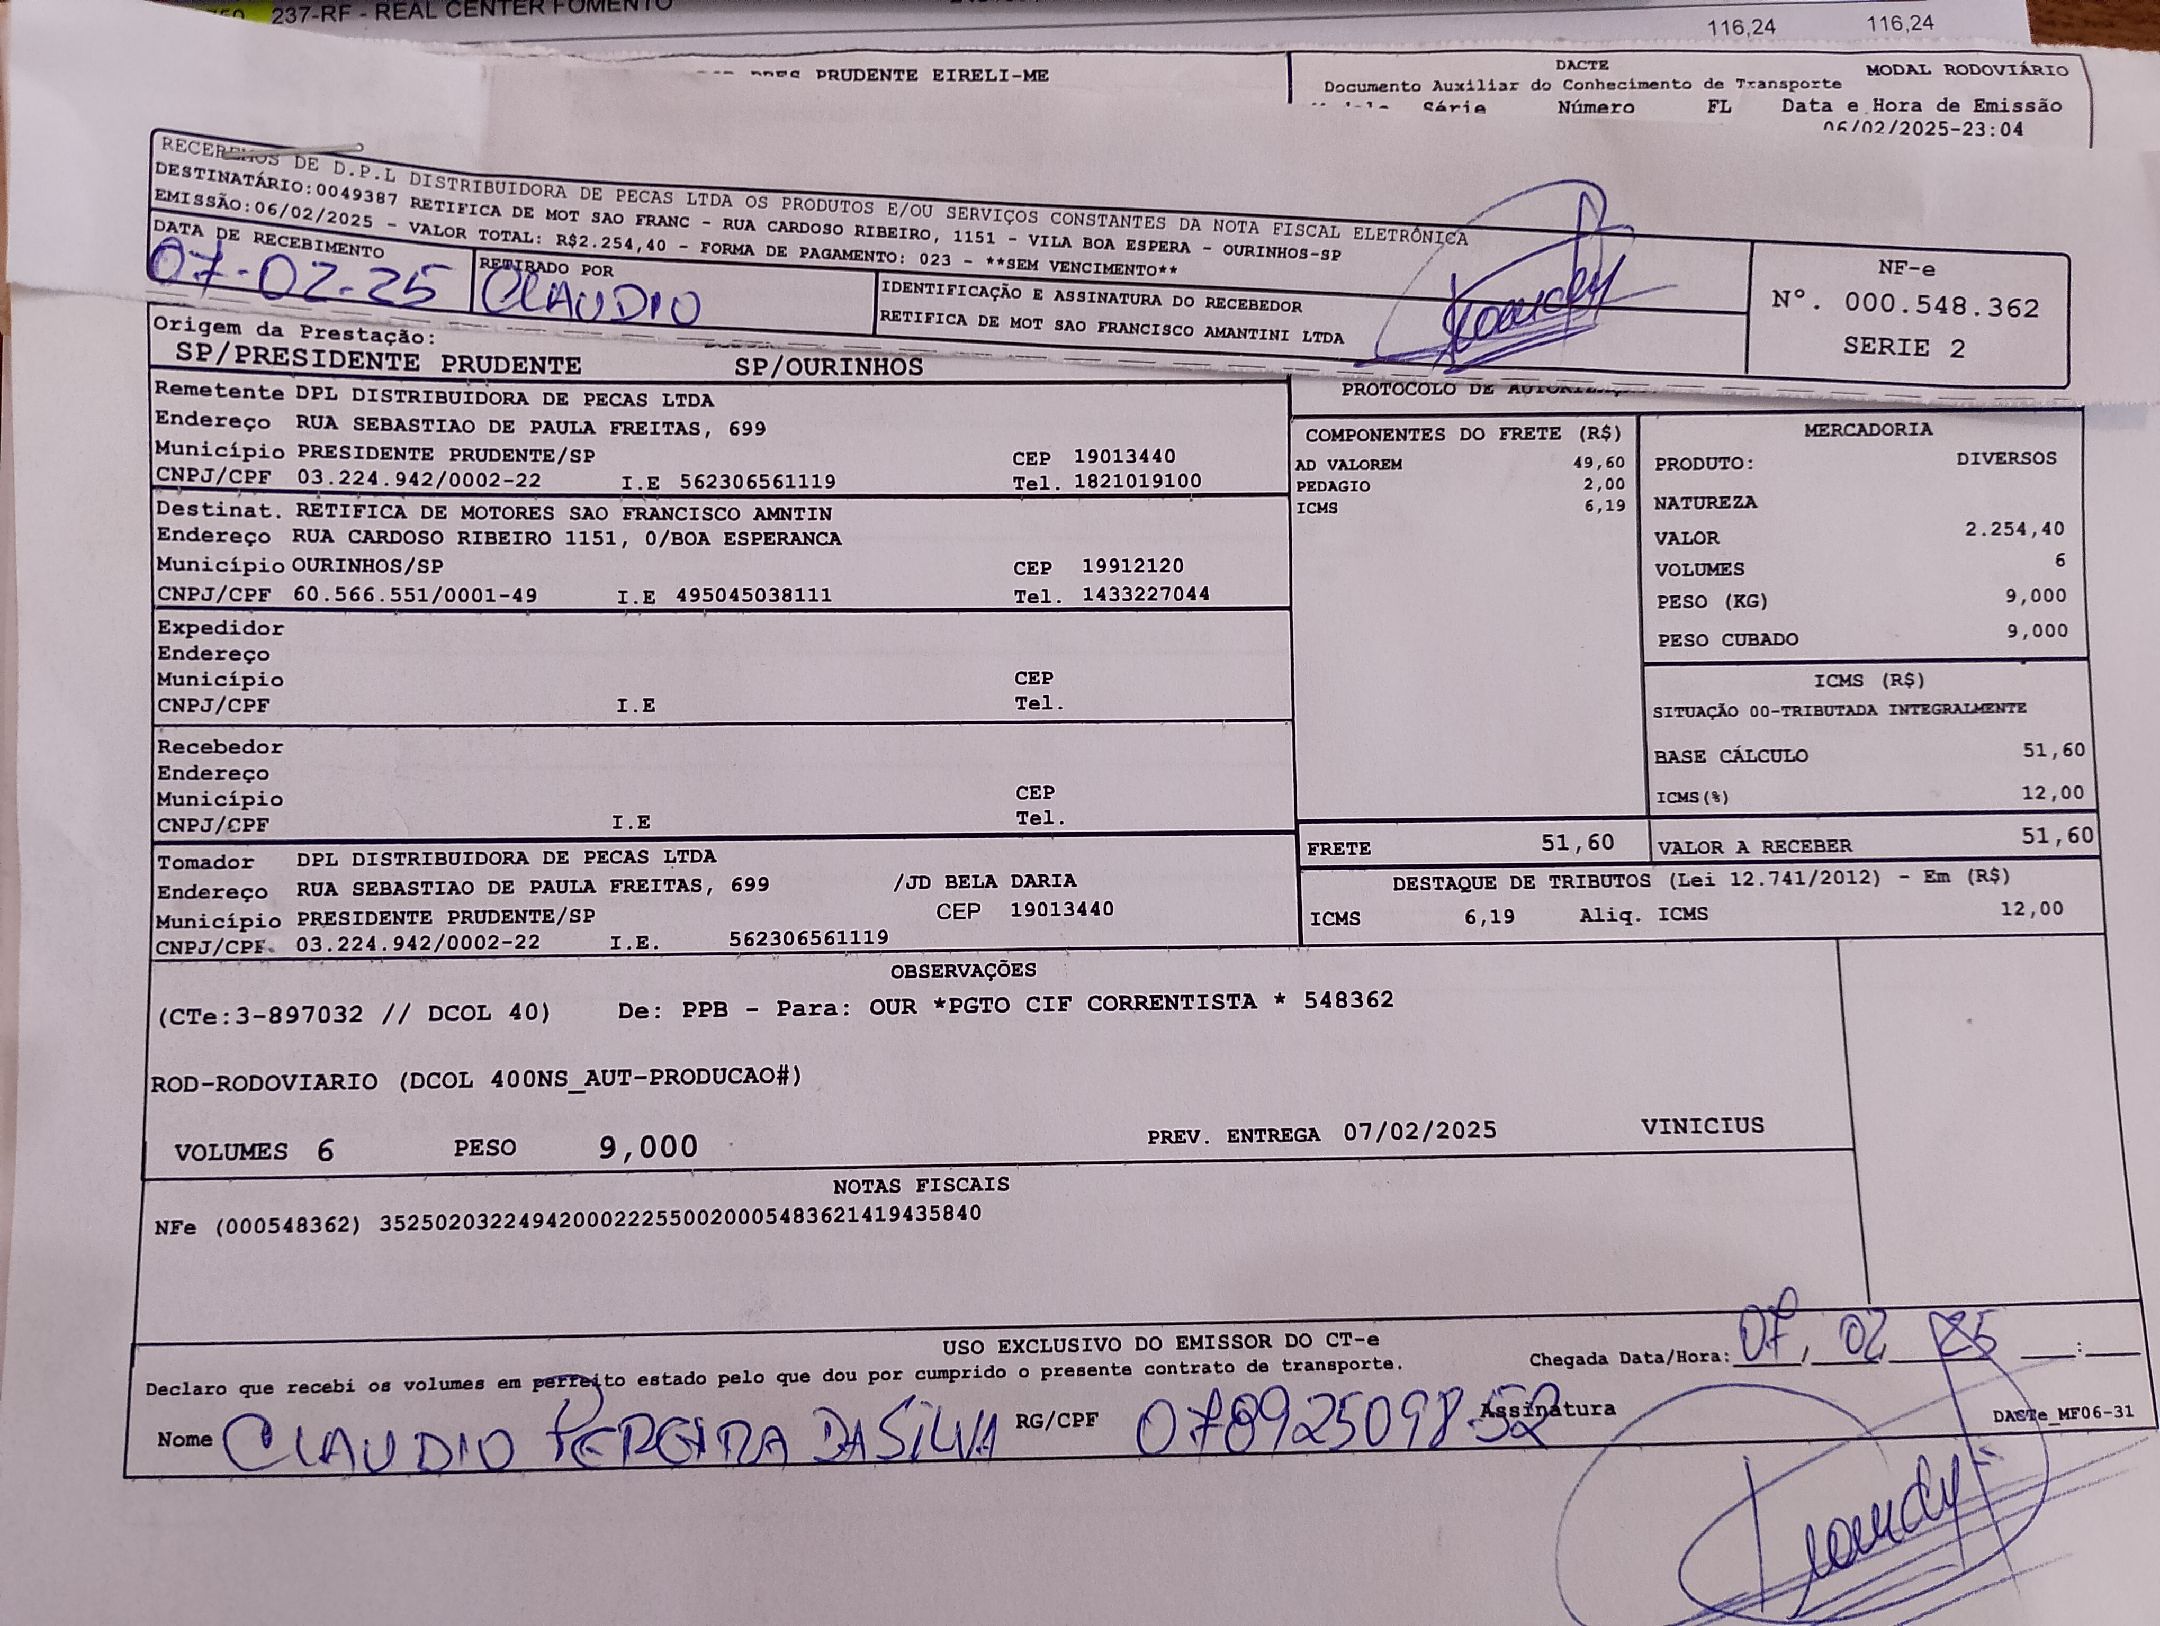 237-RF - REAL CENTER FOMENTO
116,24 116,24
PRUDENTE EIRELI-ME
DACTE MODAL RODOVIÁRIO
Documento Auxiliar do Conhecimento de Transporte
Série Número FL Data e Hora de Emissão
06/02/2025-23:04
RECEBEMOS DE D.P.L DISTRIBUIDORA DE PECAS LTDA OS PRODUTOS E/OU SERVIÇOS CONSTANTES DA NOTA FISCAL ELETRÔNICA
DESTINATÁRIO:0049387 RETIFICA DE MOT SAO FRANC - RUA CARDOSO RIBEIRO, 1151 - VILA BOA ESPERA - OURINHOS-SP
EMISSÃO:06/02/2025 - VALOR TOTAL: R$2.254,40 - FORMA DE PAGAMENTO: 023 - **SEM VENCIMENTO**
DATA DE RECEBIMENTO
07-02-25
RETIRADO POR
CLAUDIO
IDENTIFICAÇÃO E ASSINATURA DO RECEBEDOR
RETIFICA DE MOT SAO FRANCISCO AMANTINI LTDA
NF-e
Nº. 000.548.362
SERIE 2
Origem da Prestação:
SP/PRESIDENTE PRUDENTE SP/OURINHOS
PROTOCOLO DE
Remetente DPL DISTRIBUIDORA DE PECAS LTDA
Endereço RUA SEBASTIAO DE PAULA FREITAS, 699
Município PRESIDENTE PRUDENTE/SP CEP 19013440
CNPJ/CPF 03.224.942/0002-22 I.E 562306561119 Tel. 1821019100
Destinat. RETIFICA DE MOTORES SAO FRANCISCO AMNTIN
Endereço RUA CARDOSO RIBEIRO 1151, 0/BOA ESPERANCA
Município OURINHOS/SP CEP 19912120
CNPJ/CPF 60.566.551/0001-49 I.E 495045038111 Tel. 1433227044
Expedidor
Endereço
Município CEP
CNPJ/CPF I.E Tel.
Recebedor
Endereço
Município CEP
CNPJ/CPF I.E Tel.
Tomador DPL DISTRIBUIDORA DE PECAS LTDA
Endereço RUA SEBASTIAO DE PAULA FREITAS, 699 /JD BELA DARIA
Município PRESIDENTE PRUDENTE/SP CEP 19013440
CNPJ/CPF. 03.224.942/0002-22 I.E. 562306561119
COMPONENTES DO FRETE (R$)
AD VALOREM 49,60
PEDAGIO 2,00
ICMS 6,19
MERCADORIA
PRODUTO: DIVERSOS
NATUREZA
VALOR 2.254,40
VOLUMES 6
PESO (KG) 9,000
PESO CUBADO 9,000
ICMS (R$)
SITUAÇÃO 00-TRIBUTADA INTEGRALMENTE
BASE CÁLCULO 51,60
ICMS(%) 12,00
FRETE 51,60 VALOR A RECEBER 51,60
DESTAQUE DE TRIBUTOS (Lei 12.741/2012) - Em (R$)
ICMS 6,19 Aliq. ICMS 12,00
OBSERVAÇÕES
(CTe:3-897032 // DCOL 40) De: PPB - Para: OUR *PGTO CIF CORRENTISTA * 548362
ROD-RODOVIARIO (DCOL 400NS_AUT-PRODUCAO#)
VOLUMES 6 PESO 9,000 PREV. ENTREGA 07/02/2025 VINICIUS
NOTAS FISCAIS
NFe (000548362) 35250203224942000222550020005483621419435840
USO EXCLUSIVO DO EMISSOR DO CT-e
Declaro que recebi os volumes em perfeito estado pelo que dou por cumprido o presente contrato de transporte. Chegada Data/Hora: 07, 02 25 :
Nome CLAUDIO PEREIRA DA SILVA RG/CPF 078925098-52 Assinatura DACTe_MF06-31